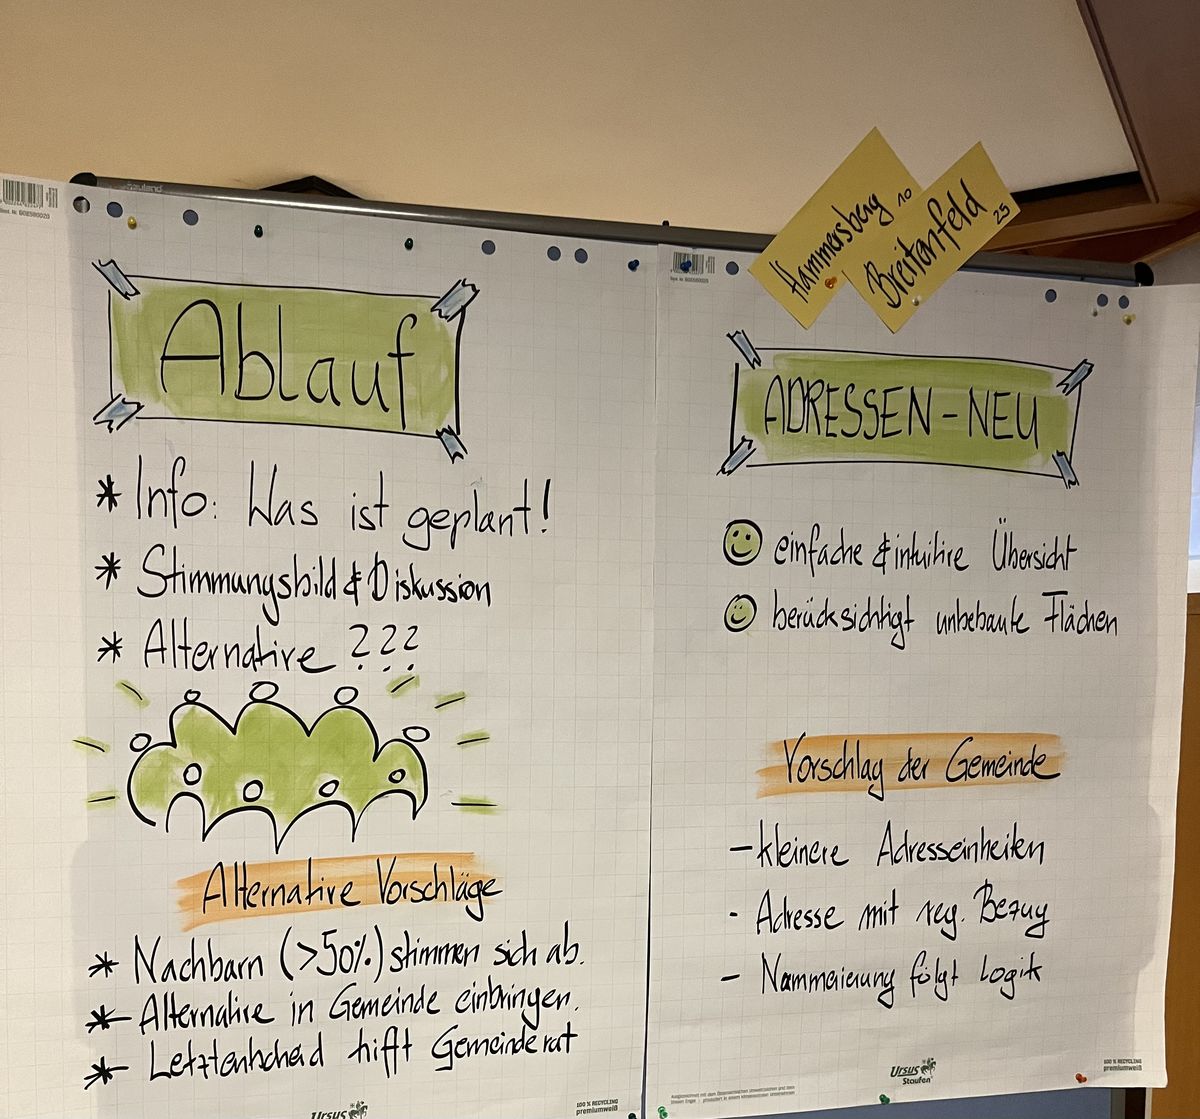 Ablauf
* Info: Was ist geplant!
* Stimmungsbild & Diskussion
* Alternative ???
Alternative Vorschläge
* Nachbarn (>50%) stimmen sich ab.
* Alternative in Gemeinde einbringen.
* Letztentscheid trifft Gemeinderat
Ursus
100 % RECYCLING
premiumweiß
Hammersberg 10
Breitenfeld 25
ADRESSEN-NEU
einfache & intuitive Übersicht
berücksichtigt unbebaute Flächen
Vorschlag der Gemeinde
- kleinere Adresseinheiten
- Adresse mit reg. Bezug
- Nummerierung folgt Logik
Ursus
Staufen
100 % RECYCLING
premiumweiß